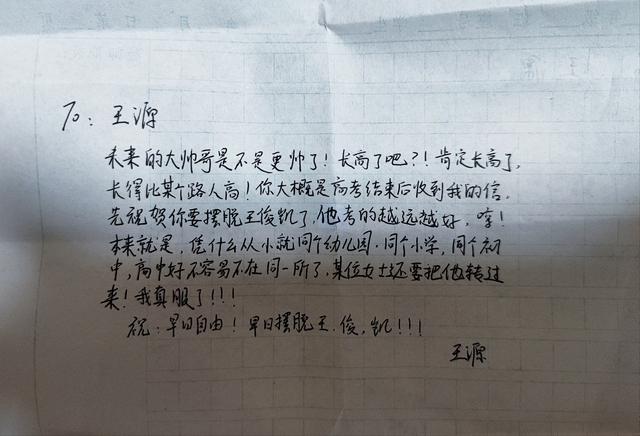 To：王源
未来的大帅哥是不是更帅了！长高了吧？！肯定长高了，
长得比某个路人高！你大概是高考结束后收到我的信。
先祝贺你要摆脱王俊凯了，他考的越远越好，哼！
本来就是，凭什么从小就同个幼儿园·同个小学，同个初
中，高中好不容易不在同一所了，某位女士还要把他转过
来！我真服了！！！
祝：早日自由！早日摆脱王.俊.凯！！！
王源